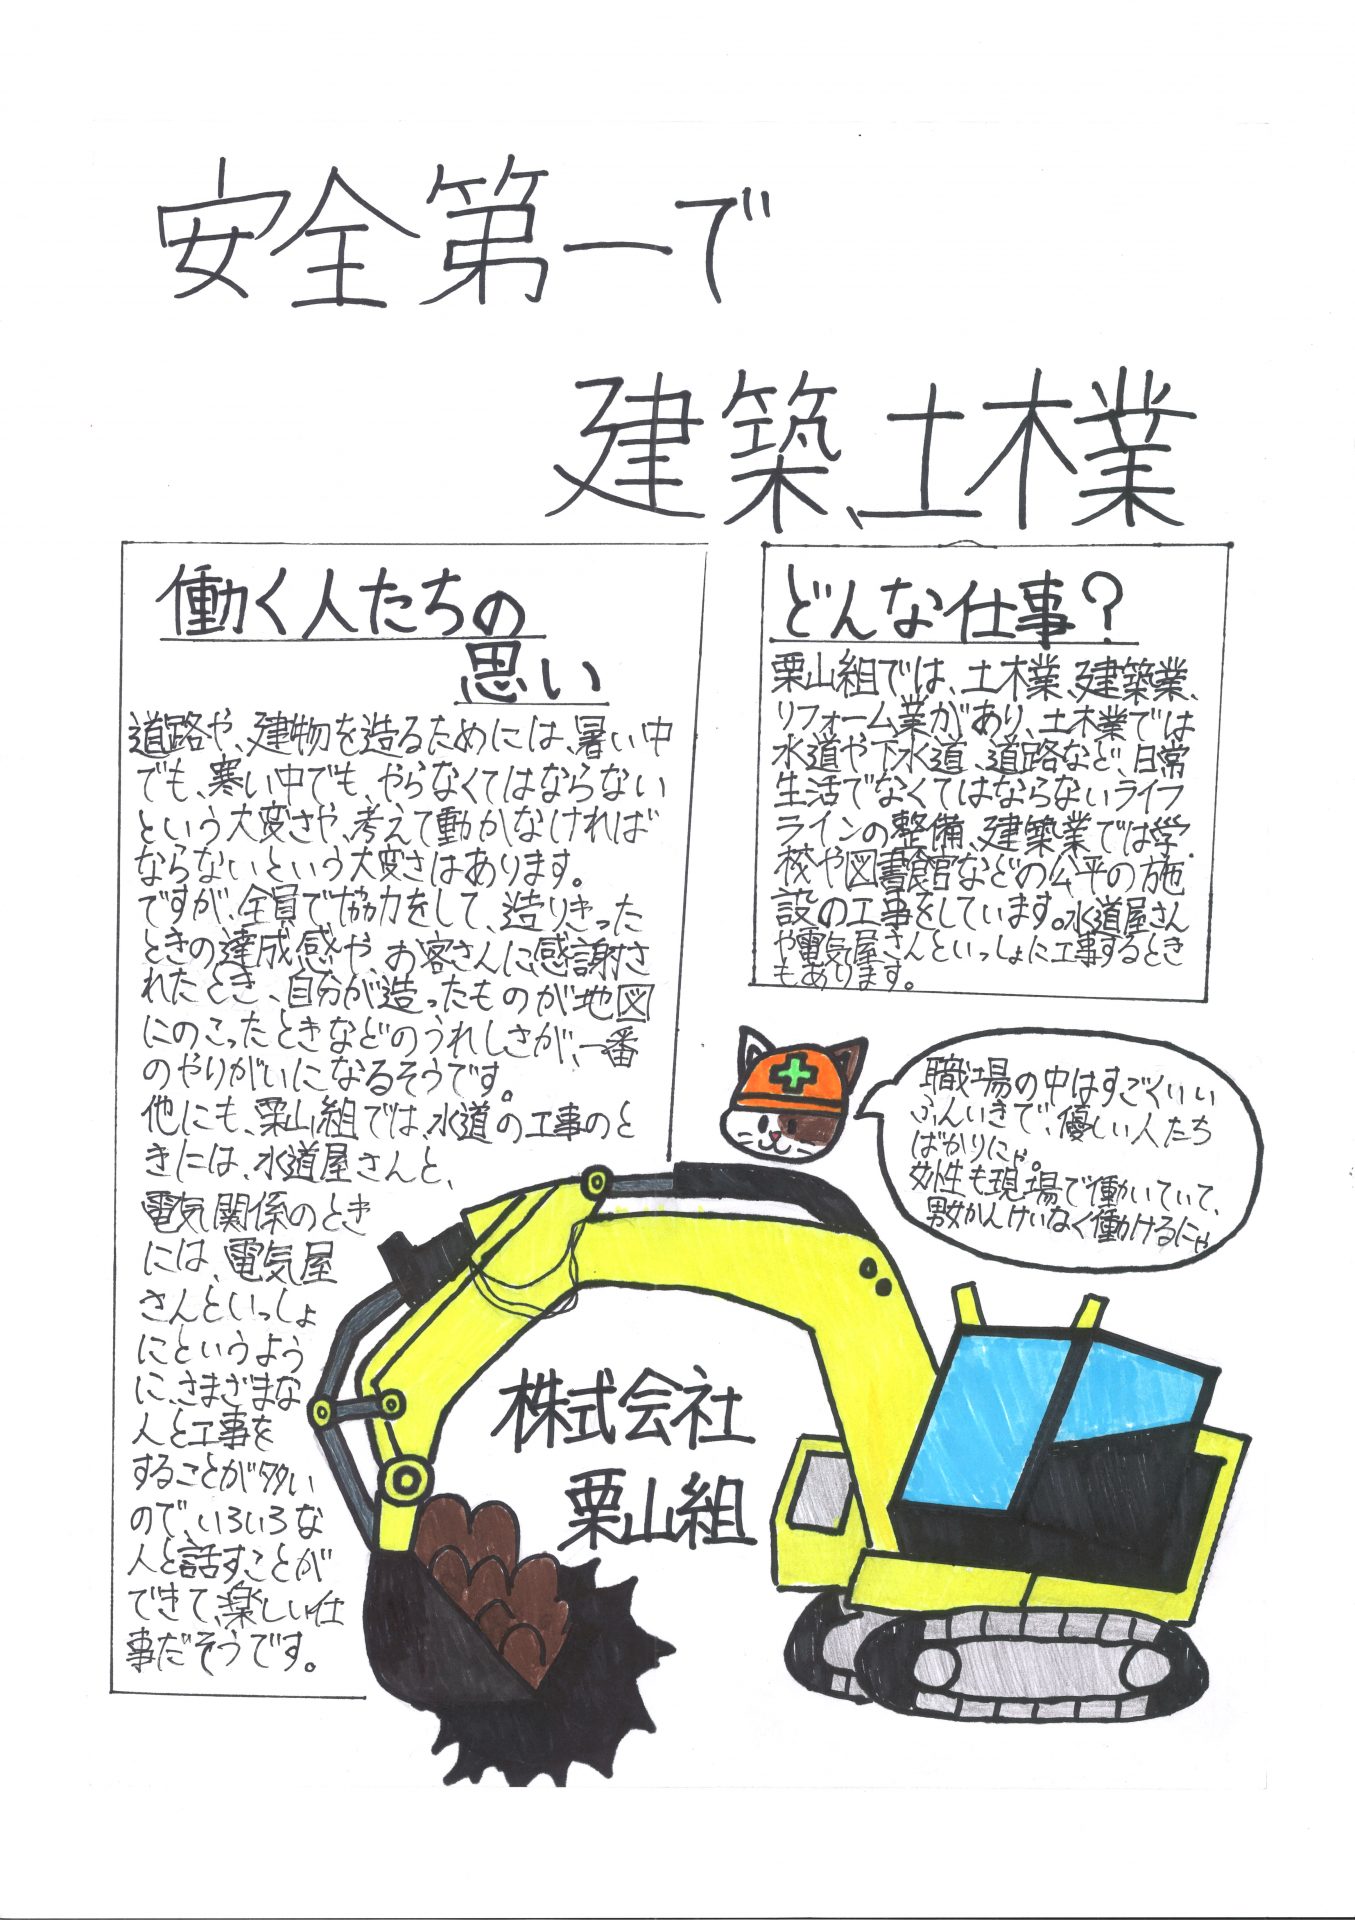 安全第一で
建築、土木業
働く人たちの
思い
道路や、建物を造るためには、暑い中
でも、寒い中でも、やらなくてはならない
という大変さや、考えて動かなければ
ならないという大変さはあります。
ですが、全員で協力をして、造りきった
ときの達成感や、お客さんに感謝さ
れたとき、自分が造ったものが地図
にのこったときなどのうれしさが、一番
のやりがいになるそうです。
他にも、栗山組では、水道の工事のと
きには、水道屋さんと、
電気関係のとき
には、電気屋
さんといっしょ
にというよう
に、さまざまな
人と工事を
することが多い
ので、いろいろな
人と話すことが
できて、楽しい仕
事だそうです。
どんな仕事?
栗山組では、土木業、建築業、
リフォーム業があり、土木業では
水道や下水道、道路など、日常
生活でなくてはならないライフ
ラインの整備、建築業では学
校や図書館などの公平の施
設の工事をしています。水道屋さん
や電気屋さんといっしょに工事するとき
もあります。
職場の中はすごくいい
ふんいきで、優しい人たち
ばかりにゃ。
女性も現場で働いていて、
男女かんけいなく働けるにゃ
株式会社
栗山組